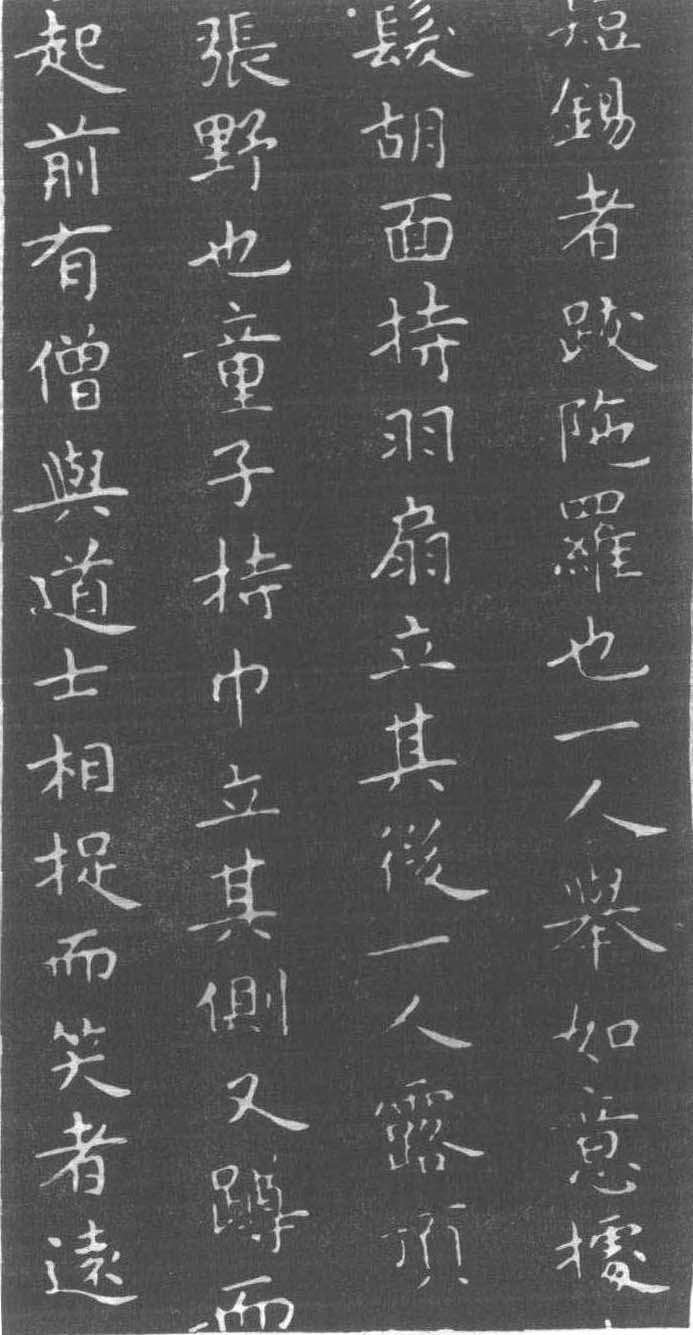 短錫者跋陁羅也一人舉如意據
髮胡面持羽扇立其後一人露頂
張野也童子持巾立其側又蹲而
起前有僧與道士相捉而笑者遠